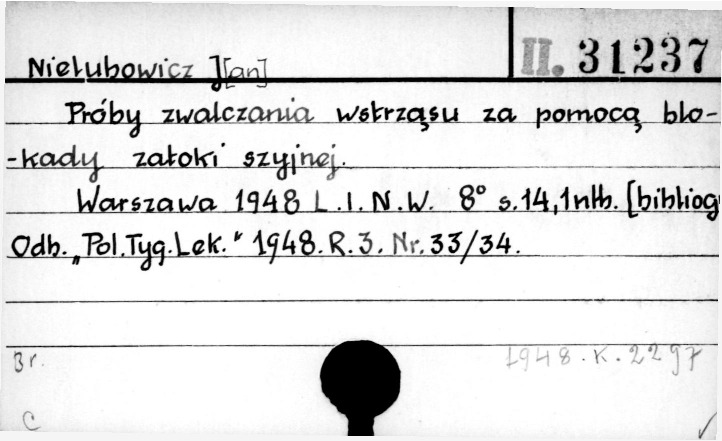 II. 31237
Nielubowicz J[an]
Próby zwalczania wstrząsu za pomocą blo-
-kady zatoki szyjnej.
Warszawa 1948 L.I.N.W. 8° s.14,1nlb. [bibliog
Odb. „Pol.Tyg.Lek." 1948. R.3. Nr.33/34.
Br. 1948.K.2297
C